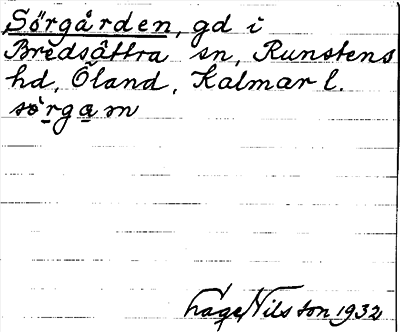 Sörgården, gd i
Bredsättra sn, Runstens
hd, Öland, Kalmar l.
sörgam
Låge Nilsson 1932